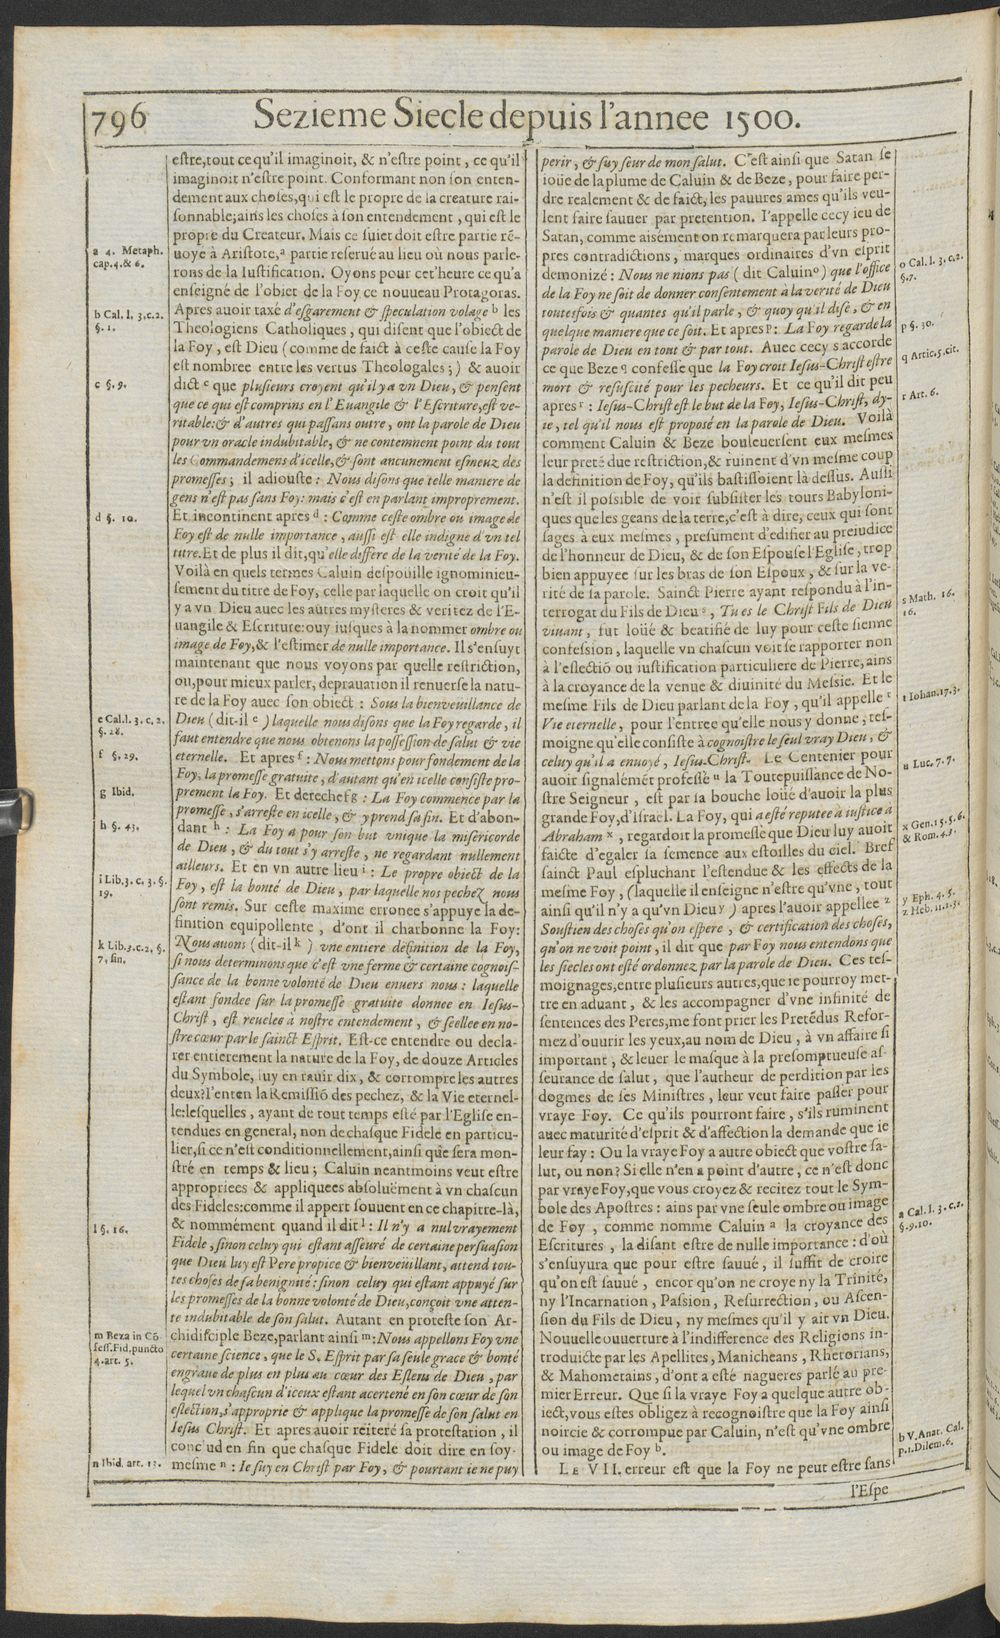 796 Sezieme Siecle depuis l'annee 1500.
estre, tout ce qu'il imaginoit, & n'estre point, ce qu'il
imaginoit n'estre point. Conformant non son enten-
dement aux choses, qui est le propre de la creature rai-
sonnable; ains les choses à son entendement, qui est le
propre du Createur. Mais ce suiet doit estre partie rē-
uoyé à Aristote,ᵃ partie reserué au lieu où nous parle-
rons de la Iustification. Oyons pour cet'heure ce qu'a
enseigné de l'obiet de la Foy ce nouueau Protagoras.
Apres auoir taxé d'esgarement & speculation volage ᵇ les
Theologiens Catholiques, qui disent que l'obiect de
la Foy, est Dieu (comme de faict à ceste cause la Foy
est nombree entre les vertus Theologales;) & auoir
dict ᶜ que plusieurs croyent qu'il y a vn Dieu, & pensent
que ce qui est comprins en l'Euangile & l'Escriture, est ve-
ritable: & d'autres qui passans outre, ont la parole de Dieu
pour vn oracle indubitable, & ne contemnent point du tout
les Commandemens d'icelle, & sont aucunement esmeuz des
promesses; il adiouste: Nous disons que telle maniere de
gens n'est pas sans Foy: mais c'est en parlant improprement.
Et incontinent apres ᵈ: Comme ceste ombre ou image de
Foy est de nulle importance, aussi est elle indigne d'vn tel
titre. Et de plus il dit, qu'elle differe de la verité de la Foy.
Voilà en quels termes Caluin despouille ignominieu-
sement du titre de Foy, celle par laquelle on croit qu'il
y a vn Dieu auec les autres mysteres & veritez de l'E-
uangile & Escriture: ouy iusques à la nommer ombre ou
image de Foy, & l'estimer de nulle importance. Il s'ensuyt
maintenant que nous voyons par quelle restriction,
ou, pour mieux parler, deprauation il renuerse la natu-
re de la Foy auec son obiect: Sous la bienveuillance de
Dieu (dit-il ᵉ) laquelle nous disons que la Foy regarde, il
faut entendre que nous obtenons la possession de salut & vie
eternelle. Et apres ᶠ: Nous mettons pour fondement de la
Foy, la promesse gratuite, d'autant qu'en icelle consiste pro-
prement la Foy. Et derechef ᵍ: La Foy commence par la
promesse, s'arreste en icelle, & y prend sa fin. Et d'abon-
dant ʰ: La Foy a pour son but vnique la misericorde
de Dieu, & du tout s'y arreste, ne regardant nullement
ailleurs. Et en vn autre lieu ⁱ: Le propre obiect de la
Foy, est la bonté de Dieu, par laquelle nos pechez nous
sont remis. Sur ceste maxime erronee s'appuye la de-
finition equipollente, d'ont il charbonne la Foy:
Nous auons (dit-il ᵏ) vne entiere definition de la Foy,
si nous determinons que c'est vne ferme & certaine cognois-
sance de la bonne volonté de Dieu enuers nous: laquelle
estant fondee sur la promesse gratuite donnee en Iesus-
Christ, est reuelee à nostre entendement, & séellee en no-
stre cœur par le sainct Esprit. Est-ce entendre ou decla-
rer entierement la nature de la Foy, de douze Articles
du Symbole, luy en rauir dix, & corrompre les autres
deux? l'enten la Remissiō des pechez, & la Vie eternel-
le: lesquelles, ayant de tout temps esté par l'Eglise en-
tendues en general, non de chasque Fidele en particu-
lier, si ce n'est conditionnellement, ainsi que sera mon-
stré en temps & lieu; Caluin neantmoins veut estre
appropriees & appliquees absoluëment à vn chascun
des Fideles: comme il appert souuent en ce chapitre-là,
& nommément quand il dit ˡ: Il n'y a nul vrayement
Fidele, sinon celuy qui estant asseuré de certaine persuasion
que Dieu luy est Pere propice & bienveuillant, attend tou-
tes choses de sa benignité: sinon celuy qui estant appuyé sur
les promesses de la bonne volonté de Dieu, conçoit vne atten-
te indubitable de son salut. Autant en proteste son Ar-
chidisciple Beze, parlant ainsi ᵐ: Nous appellons Foy vne
certaine science, que le S. Esprit par sa seule grace & bonté
engraue de plus en plus au cœur des Esleus de Dieu, par
lequel vn chascun d'iceux estant acertené en son cœur de son
eslection, s'approprie & applique la promesse de son salut en
Iesus Christ. Et apres auoir reïteré sa protestation, il
conclud en fin que chasque Fidele doit dire en soy-
mesme ⁿ: Ie suy en Christ par Foy, & pourtant ie ne puy
a 4. Metaph.
cap. 4. & 6.
b Cal. l. 3. c. 2.
§. 1.
c §. 9.
d §. 10.
e Cal. l. 3. c. 2.
§. 28.
f §. 29.
g Ibid.
h §. 43.
i Lib. 3. c. 3. §.
19.
k Lib. 3. c. 2. §.
7. fin.
l §. 16.
m Beza in Cō
fess. Fid. puncto
4. art. 5.
n Ibid. art. 13.
perir, & suy seur de mon salut. C'est ainsi que Satan se
ioüe de la plume de Caluin & de Beze, pour faire per-
dre realement & de faict, les pauures ames qu'ils veu-
lent faire sauuer par pretention. I'appelle cecy ieu de
Satan, comme aisément on remarquera par leurs pro-
pres contradictions, marques ordinaires d'vn esprit
demonizé: Nous ne nions pas (dit Caluin ᵒ) que l'office
de la Foy ne soit de donner consentement à la verité de Dieu
toutesfois & quantes qu'il parle, & quoy qu'il dise, & en
quelque maniere que ce soit. Et apres ᵖ: La Foy regarde la
parole de Dieu en tout & par tout. Auec cecy s'accorde
ce que Beze q confesse que la Foy croit Iesus-Christ estre
mort & resuscité pour les pecheurs. Et ce qu'il dit peu
apres ʳ: Iesus-Christ est le but de la Foy, Iesus-Christ, dy-
ie, tel qu'il nous est proposé en la parole de Dieu. Voilà
comment Caluin & Beze bouleuersent eux mesmes
leur pretēdue restriction, & ruinent d'vn mesme coup
la definition de Foy, qu'ils bastissoient là dessus. Aussi
n'est il possible de voir subsister les tours Babyloni-
ques que les geans de la terre, c'est à dire, ceux qui sont
sages à eux mesmes, presument d'edifier au preiudice
de l'honneur de Dieu, & de son Espouse l'Eglise, trop
bien appuyee sur les bras de son Espoux, & sur la ve-
rité de sa parole. Sainct Pierre ayant respondu à l'in-
terrogat du Fils de Dieu ˢ, Tu es le Christ Fils de Dieu
viuant, fut loüé & beatifié de luy pour ceste sienne
confession, laquelle vn chascun voit se rapporter non
à l'eslectiō ou iustification particuliere de Pierre, ains
à la croyance de la venue & diuinité du Messie. Et le
mesme Fils de Dieu parlant de la Foy, qu'il appelle ᵗ
Vie eternelle, pour l'entree qu'elle nous y donne, tes-
moigne qu'elle consiste à cognoistre le seul vray Dieu, &
celuy qu'il a enuoyé, Iesus-Christ. Le Centenier pour
auoir signalémēt professé ᵘ la Toutepuissance de No-
stre Seigneur, est par sa bouche loüé d'auoir la plus
grande Foy, d'Israel. La Foy, qui a esté reputee à iustice à
Abraham ˣ, regardoit la promesse que Dieu luy auoit
faicte d'egaler sa semence aux estoilles du ciel. Bref
sainct Paul espluchant l'estendue & les effects de la
mesme Foy, (laquelle il enseigne n'estre qu'vne, tout
ainsi qu'il n'y a qu'vn Dieu ʸ) apres l'auoir appellee ᶻ
Soustien des choses qu'on espere, & certification des choses,
qu'on ne voit point, il dit que par Foy nous entendons que
les siecles ont esté ordonnez par la parole de Dieu. Ces tes-
moignages, entre plusieurs autres, que ie pourroy met-
tre en aduant, & les accompagner d'vne infinité de
sentences des Peres, me font prier les Pretēdus Refor-
mez d'ouurir les yeux, au nom de Dieu, à vn affaire si
important, & leuer le masque à la presomptueuse as-
seurance de salut, que l'autheur de perdition par les
dogmes de ses Ministres, leur veut faire passer pour
vraye Foy. Ce qu'ils pourront faire, s'ils ruminent
auec maturité d'esprit & d'affection la demande que ie
leur fay: Ou la vraye Foy a autre obiect que vostre sa-
lut, ou non? Si elle n'en a point d'autre, ce n'est donc
par vraye Foy, que vous croyez & recitez tout le Sym-
bole des Apostres: ains par vne seule ombre ou image
de Foy, comme nomme Caluin ᵃ la croyance des
Escritures, la disant estre de nulle importance: d'où
s'ensuyura que pour estre sauué, il suffit de croire
qu'on est sauué, encor qu'on ne croye ny la Trinité,
ny l'Incarnation, Passion, Resurrection, ou Ascen-
sion du Fils de Dieu, ny mesmes qu'il y ait vn Dieu.
Nouuelle ouuerture à l'indifference des Religions in-
troduicte par les Apellites, Manicheans, Rhetorians,
& Mahometains, d'ont a esté nagueres parlé au pre-
mier Erreur. Que si la vraye Foy a quelque autre ob-
iect, vous estes obligez à recognoistre que la Foy ainsi
noircie & corrompue par Caluin, n'est qu'vne ombre
ou image de Foy ᵇ.
LE VII. erreur est que la Foy ne peut estre sans
l'Espe
o Cal. l. 3. c. 2.
§. 7.
p §. 30.
q Artic. 5. cit.
r Art. 6.
s Math. 16.
16.
t Iohan. 17. 3.
u Luc. 7. 7.
x Gen. 15. 5. 6.
& Rom. 4. 3.
y Eph. 4. 5.
z Heb. 11. 1. 3.
a Cal. l. 3. c. 2.
§. 9. 10.
b V. Anat. Cal.
p. 1. Dilem. 6.